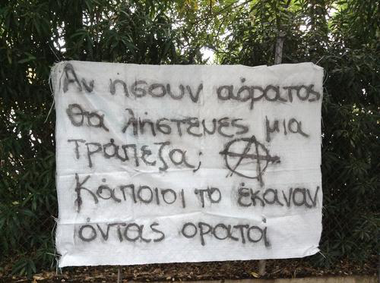 Αν ήσουν αόρατος
θα λήστευες μια
τράπεζα;
Κάποιοι το έκαναν
όντας ορατοί